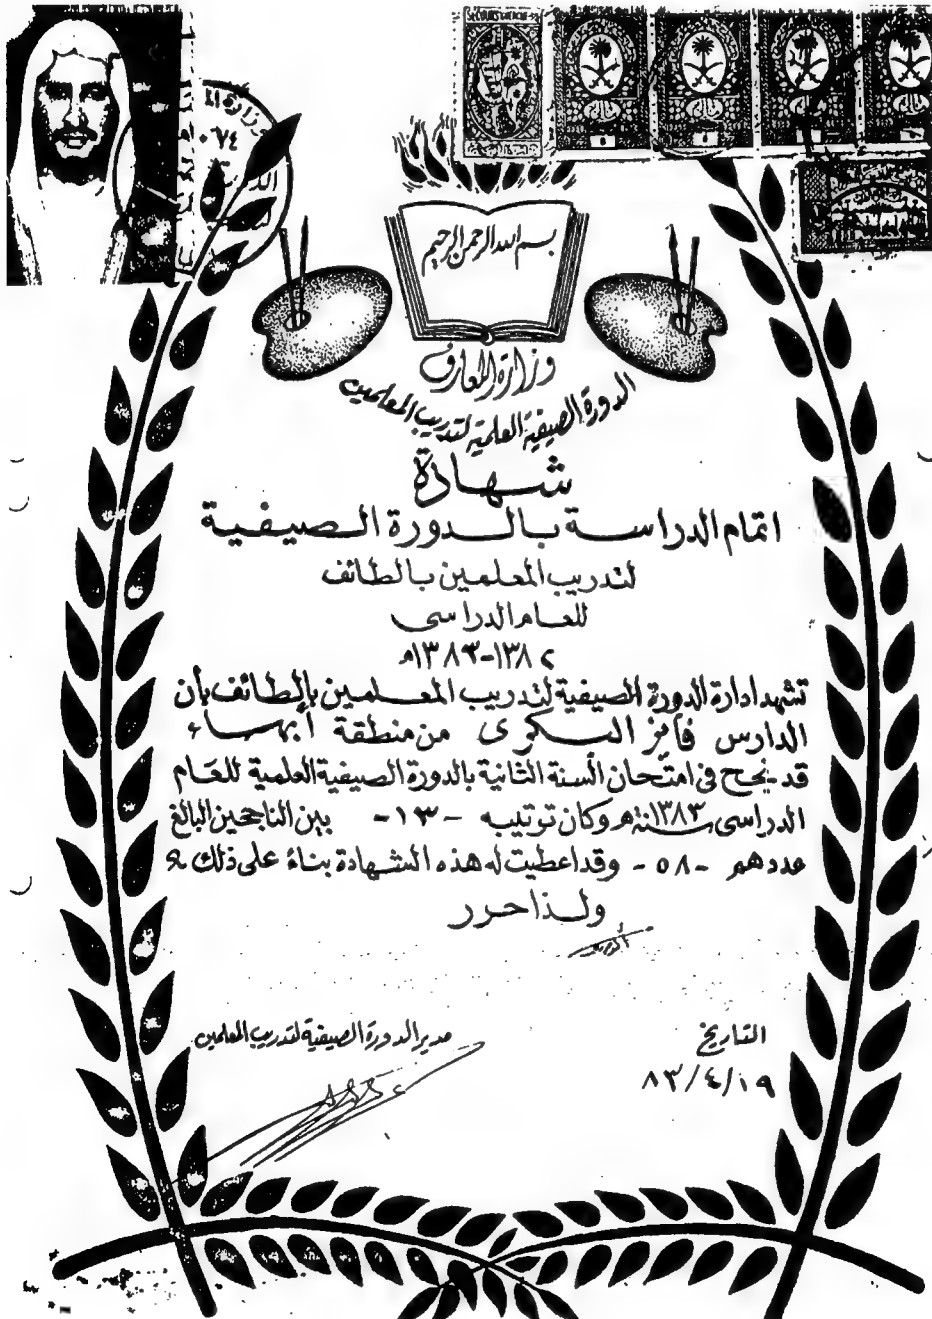 بسم الله الرحمن الرحيم
وزارة المعارف
الدورة الصيفية العلمية لتدريب المعلمين
شهادة
اتمام الدراسة بالدورة الصيفية
لتدريب المعلمين بالطائف
للعام الدراسى
١٣٨٢-١٣٨٣ھ
تشهد ادارة الدورة الصيفية لتدريب المعلمين بالطائف بان
الدارس فايز البكرى من منطقة أبهاء
قد نجح في امتحان السنة الثانية بالدورة الصيفية العلمية للعام
الدراسى سنة ١٣٨٣ھ وكان ترتيبه -١٣- بين الناجحين البالغ
عددهم -٥٨- وقد اعطيت له هذه الشهادة بناء على ذلك
ولذا حرر
مدير الدورة الصيفية لتدريب المعلمين
التاريخ
٨٣/٤/١٩